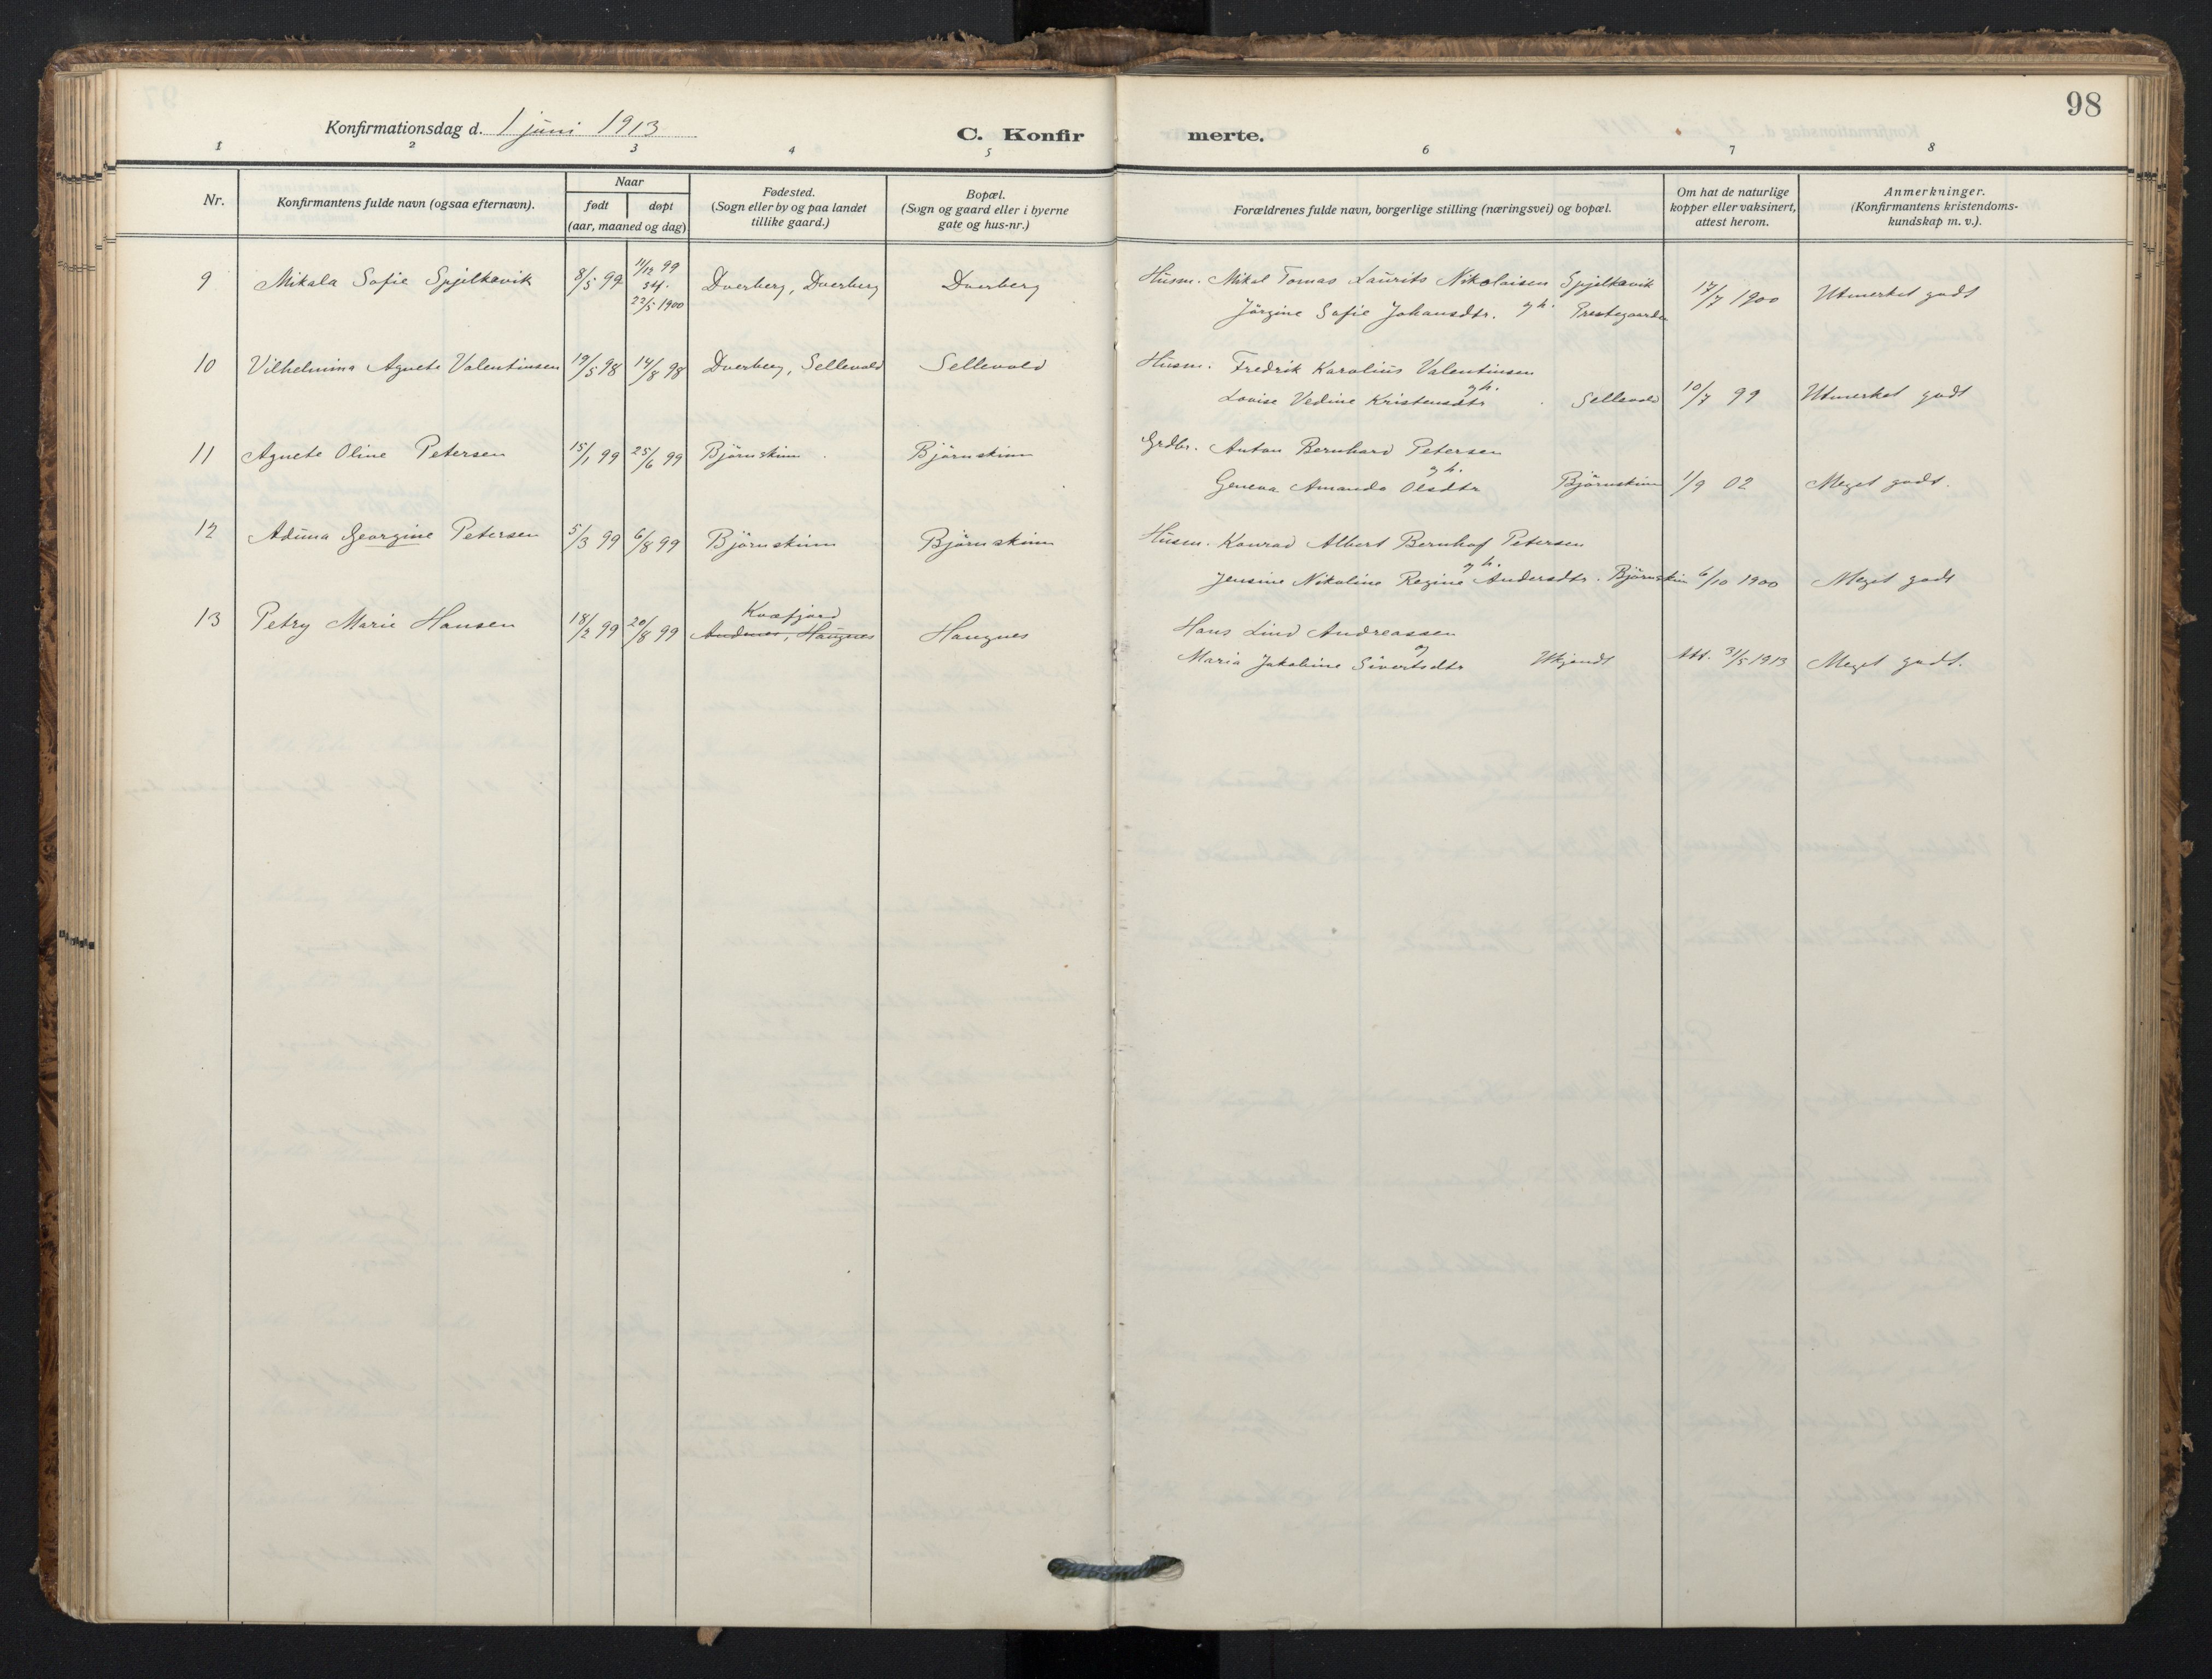 98
Konfirmationsdag d. 1 juni 1913 C. Konfir merte.
1 2 3 4 5 6 7 8
Nr. Konfirmantens fulde navn (ogsaa efternavn). Naar født døpt (aar, maaned og dag) Fødested. (Sogn eller by og paa landet tillike gaard.) Bopæl. (Sogn og gaard eller i byerne gate og hus-nr.) Forældrenes fulde navn, borgerlige stilling (næringsvei) og bopæl. Om hat de naturlige kopper eller vaksinert, attest herom. Anmerkninger. (Konfirmantens kristendoms-kundskap m. v.).
9 Mikala Sofie Spjelkavik 8/5 99 11/12 99 stf. 22/5 1900 Dverberg, Dverberg Dverberg Husm. Mikal Tomas Laurits Nikolaisen Spjelkavik
Jörgine Sofie Johansdtr. g h. Prestegaarden 17/7 1900 Utmerket godt
10 Vilhelmina Agnete Valentinsen 19/5 98 14/8 98 Dverberg, Sellevold Sellevold Husm. Fredrik Karolius Valentinsen
g h.
Lovise Vedine Kristensdtr Sellevold 10/7 99 Utmerket godt
11 Agnete Oline Petersen 15/1 99 25/6 99 Björnskinn Björnskinn Grdbr. Anton Bernhard Petersen
g h.
Geneva Amanda Olsdtr Björnskinn 1/9 02 Meget godt.
12 Aduna Georgine Petersen 5/3 99 6/8 99 Björnskinn Björnskinn Husm. Konrad Albert Bernhof Petersen
g h.
Jensine Nikoline Regine Andersdtr. Björnskin 6/10 1900 Meget godt
13 Petry Marie Hansen 18/2 99 20/8 99 Kvæfjord Andenes, Haugnes Haugnes Hans Lind Andreassen
og
Maria Jakobine Sivertsdtr Ukjendt Att. 31/5 1913 Meget godt.